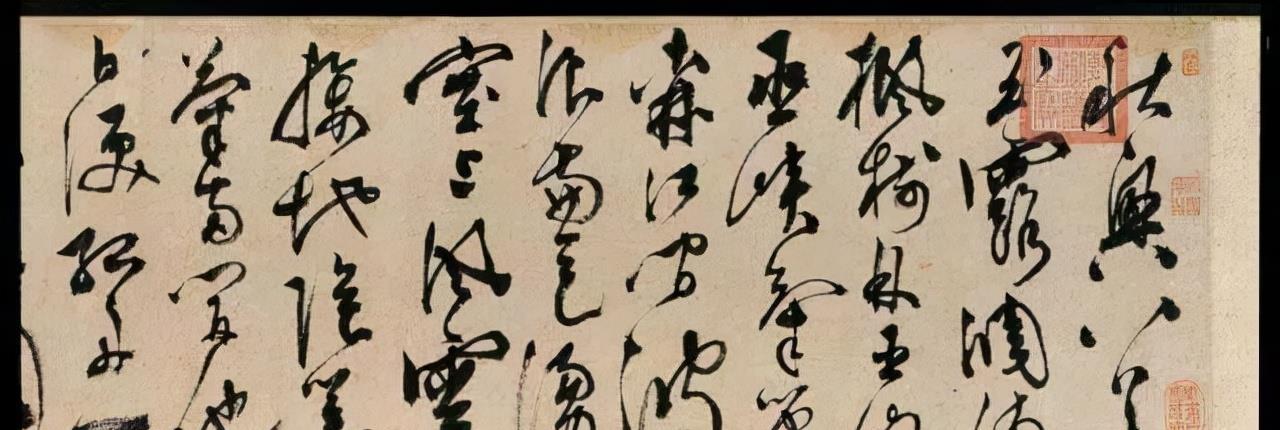 秋興八
玉露凋傷
楓樹林巫山
巫峽氣蕭
森江間波
浪兼天湧
塞上風雲
接地陰叢
菊兩開他
日淚孤舟